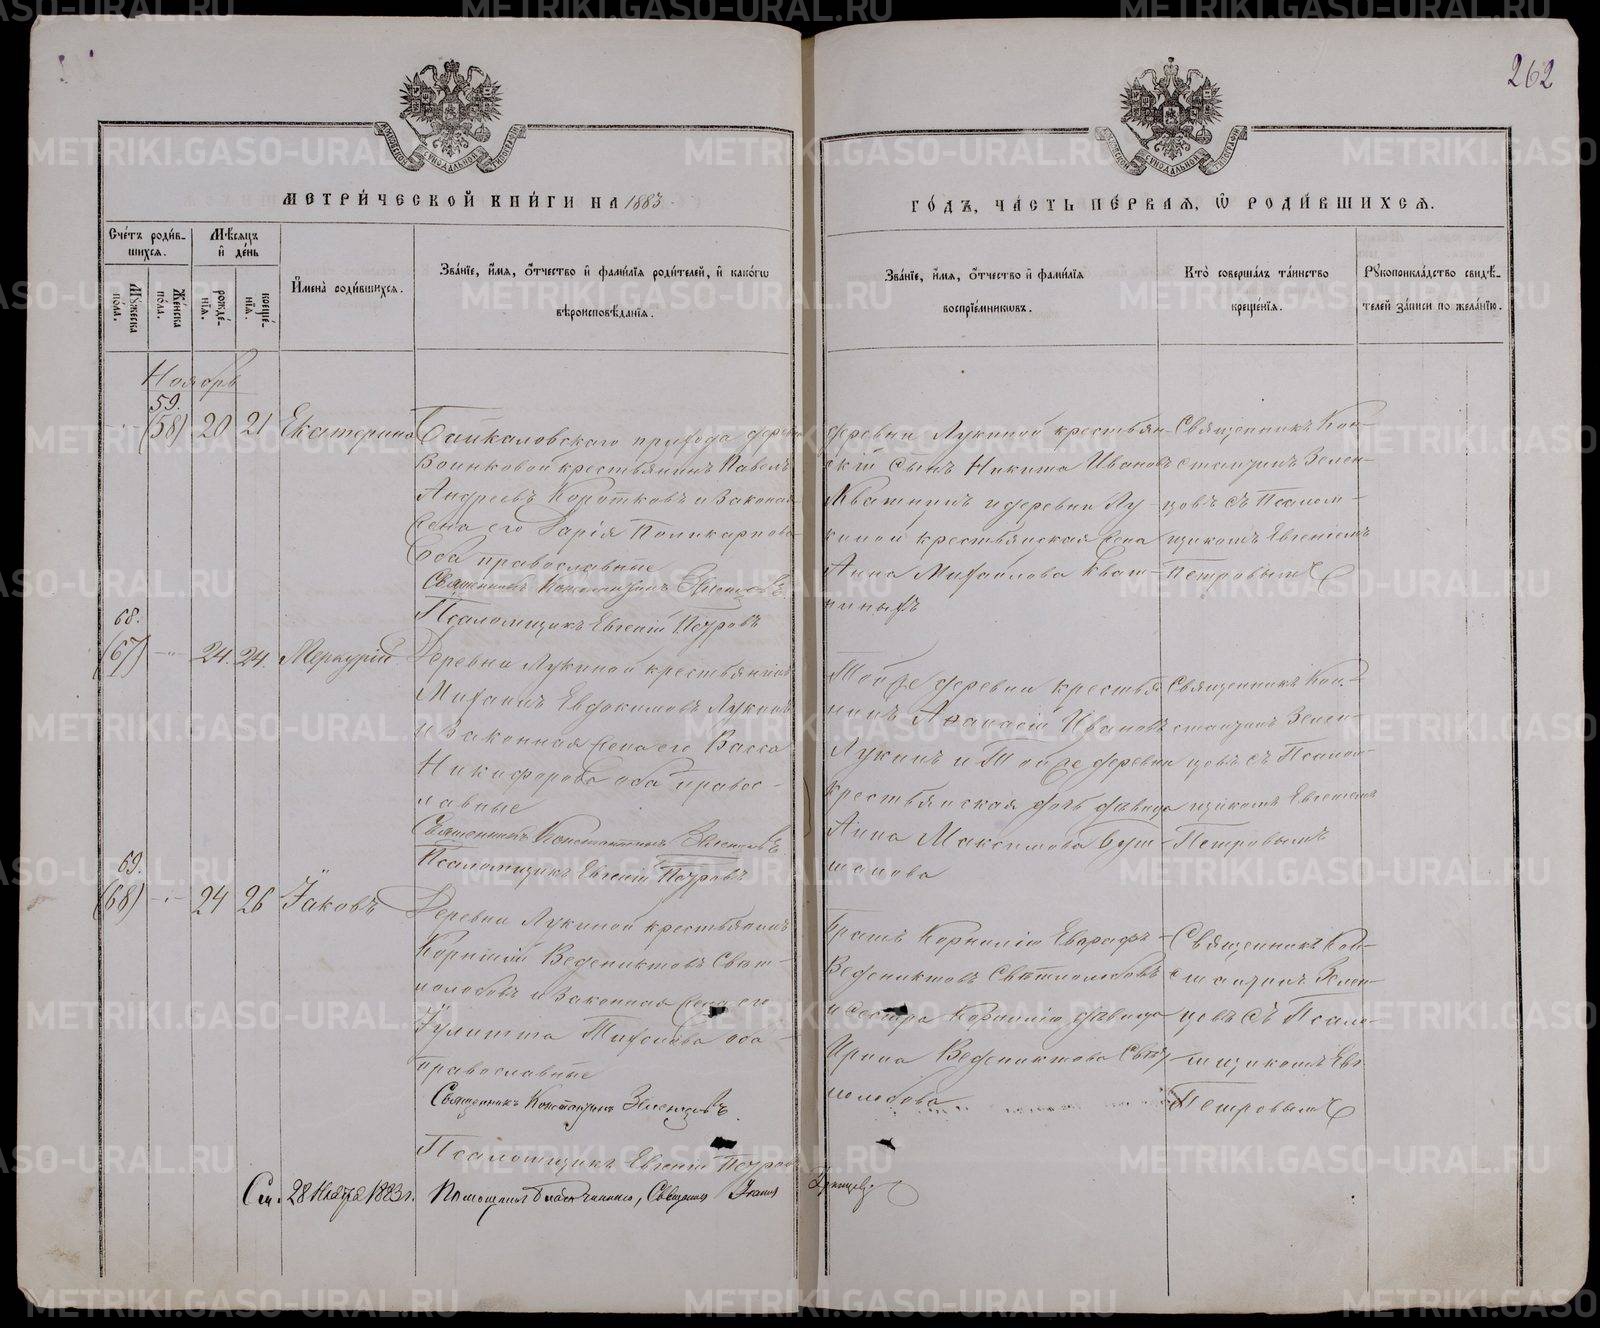 262
МЕТРИ́ЧЕСКОЙ КНИ́ГИ НА 1883
ГО́ДЪ, ЧА́СТЬ ПЕ́РВАЯ, Ѡ РОДИ́ВШИХСЯ.
Сче́тъ роди́в-
шихся.
Мꙋжеска по́ла.
Же́нска по́ла.
Мѣ́сяцъ и҆ де́нь
рожде́-
нїѧ.
креще́-
нїѧ.
И҆мена̀ роди́вшихся.
Зва́нїе, и҆́мя, ѻ҆́тчество и҆ фами́лїѧ роди́телей, и҆ како́гѡ
вѣроисповѣ́данїѧ.
Зва́нїе, и҆́мя, ѻ҆́тчество и҆ фами́лїѧ
воспрїе́мникѡвъ.
Кто̀ соверша́лъ та́инство
креще́нїѧ.
Рꙋкоприкла́дство свидѣ́-
телей за́писи по жела́нїю.
Ноябрь
59.
(58) 20 21 Екатерина
Байкаловскаго прихода дерев.
Воинковой крестьянинъ Павелъ
Андреевъ Коротковъ и законная
жена его Дарія Поликарпова
оба православные
Священникъ Константинъ Зеленцовъ
Псаломщикъ Евгеній Петровъ
деревни Лукиной крестьян-
скій сынъ Никита Ивановъ
Квашнинъ и деревни Лу-
киной крестьянская жена
Анна Михаилова Кваш-
ниныхъ
Священникъ Кон-
стантинъ Зелен-
цовъ съ Псалом-
щикомъ Евгеніемъ
Петровымъ
68.
(67) 24. 24. Меркурій
Деревни Лукиной крестьянинъ
Михаилъ Евдокимовъ Лукинъ
и законная жена его Васса
Никифорова оба правос-
лавные
Священникъ Константинъ Зеленцовъ
Псаломщикъ Евгеній Петровъ
Той же деревни крестья-
нинъ Афанасій Ивановъ
Лукинъ и той же деревни
крестьянская дочь дѣвица
Анна Максимова
Священникъ Кон-
стантинъ Зелен-
цовъ съ Псалом-
щикомъ Евгеніемъ
Петровымъ
69.
(68) 24 26 Іаковъ
Деревни Лукиной крестьянинъ
Корнилій Венедиктовъ Свѣт-
лолобовъ и законная жена его
Іулитта оба
православные
Священникъ Константинъ Зеленцовъ
Псаломщикъ Евгеній Петровъ
Братъ Корнилію Евграфъ
Венедиктовъ Свѣтлолобовъ
и сестра Корнилію дѣвица
Ирина Венедиктова Свѣт-
лолобова
Священникъ Кон-
стантинъ Зелен-
цовъ съ Псалом-
щикомъ Евг.
Петровымъ
См. 28 Ноября 1883 г. Помощникъ Благочиннаго, Священникъ Іоаннъ